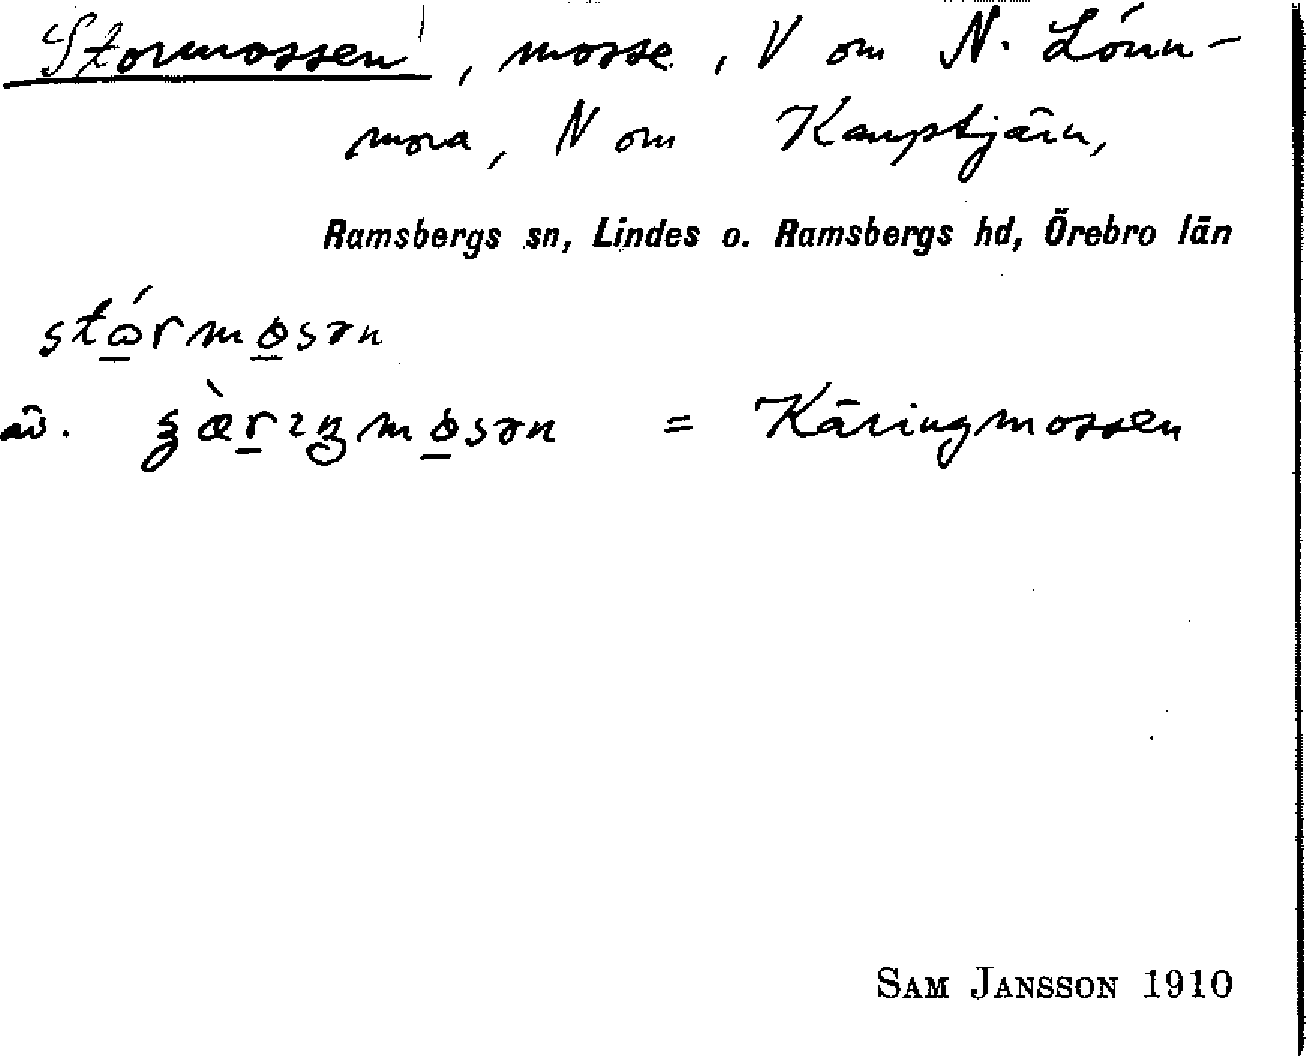 Stormossen, mosse, V om N. Lönn-
mora, N om Kamptjärn,
Ramsbergs sn, Lindes o. Ramsbergs hd, Örebro län
stɷ́rmɵsən
äv. = Käringmossen
SAM JANSSON 1910